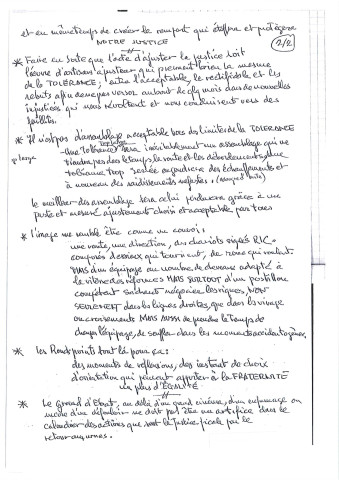 et en même temps de créer le rempart qui étoffera et protégera
NOTRE JUSTICE
2/2
* Faire en sorte que l'acte d'ajuster la justice soit
l'œuvre d'artisans ajusteurs qui prennent bien la mesure
de la TOLERANCE, entre l'acceptable, le rectifiable et les
rebuts afin de ne pas verser autant de fois dans de nouvelles
injustices qui nous révoltent et nous conduisent vers des
faillites.
* Il n'est pas d'assemblage acceptable hors des limites de la TOLERANCE
- Une tolérance trop large sera inévitablement un assemblage qui ne
tiendra pas dans le temps, la route et les débordements, une
tolérance trop serrée engendrera des échauffements et
à nouveau des raidissements néfastes.
le meilleur des assemblages sera celui perdurera grâce à un
juste et mesuré ajustement choisi et acceptable par tous
* l'image me semble être comme un convoi,
une route, une direction, des chariots
composés d'essieux qui tournent, de roues qui roulent
MAIS d'un équipage au nombre de chevaux adapté à
la vitesse des réformes MAIS SURTOUT d'un postillon
compétent sachant négocier les virages, NON
SEULEMENT dans les lignes droites, que dans les virages
ou croisements MAIS AUSSI de prendre le temps de
changer l'équipage, de souffler dans les moments accidentogènes.
* Les Ronds points sont là pour ça :
des moments de réflexions, des instants de choix
d'orientation qui peuvent apporter à la FRATERNITÉ
un plus d'EGALITÉ
* Le Grand débat, au delà d'un grand cinéma, d'un enfumage ou
même d'un défouloir ne doit pas être un artifice dans le
calendrier des actions que sont la justice fiscale par le
retour aux urnes.